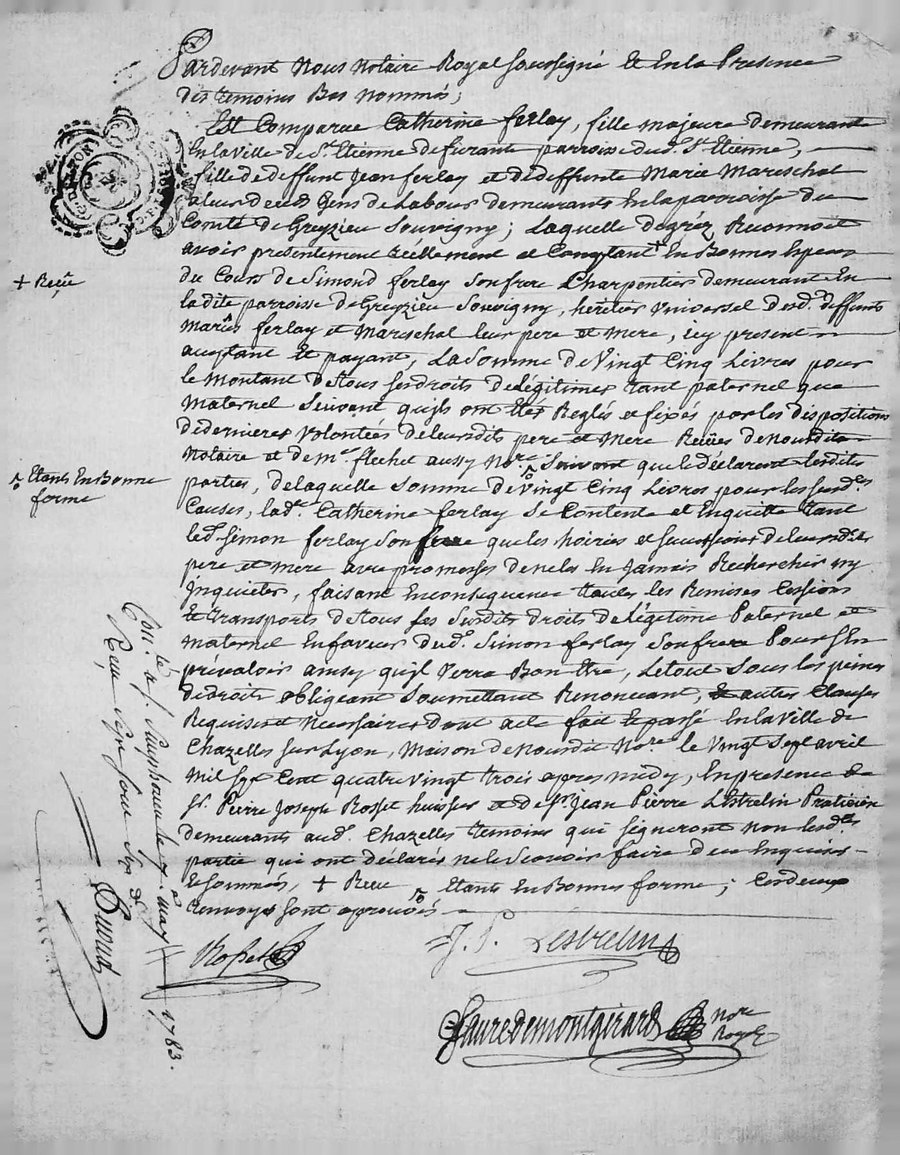 Pardevant Nous Notaire Royal soussigné Et En la Presence
des temoins Bas nommés;
Est Comparue Catherine ferlay, fille majeure demeurante
En la ville de St. Etienne de furant parroisse dud. St. Etienne,
fille de deffunt Jean ferlay et de deffunte Marie Mareschal
Gens de Labour demeurants En la parroisse du
Comté de Greyzieu Souvigny; Laquelle de gréz Reconnoit
avoir presentement réellement et Comptant En Bonnes Especes
+ Reçu
du Cours de Simond ferlay son frere Charpentier demeurant En
la dite parroisse de Greyzieu Souvigny, heritier Universel desd. deffunts
Mariés ferlay et Mareschal leur pere et mere, icy present
acceptant Et payant, La Somme de Vingt Cinq Livres pour
le Montant de tous ses droits de Légitimes tant paternel que
Maternel Suivant qu'ils ont Etes Reglés et fixés par les dispositions
de dernieres volontées de leursdits pere et Mere Reçües de Nousdit
Notaire et de me. flechet aussy Nore. Suivant que le déclarent lesdites
Etants En Bonne
forme
parties, de laquelle Somme de vingt Cinq Livres pour les susd.
Causes, lad. Catherine ferlay se Contente et En quitte tant
led. Simon ferlay son frere que les hoiries et successions de leursd.
pere et Mere avec promesses de ne les En Jamais Rechercher ny
Inquieter, faisant En consequence toutes les Remises Cessions
Et transports de tous ses Susdits droits de Légitime Paternel et
Maternel En faveur dud. Simon ferlay son frere Pour s'En
prévaloir ainsy qu'il Verra Bon Etre, Le tout Sous les peines
de droits obligeant Soumettant Renonceant, Et autres Clauses
Requises et Necessaires Dont acte fait Et passé En la Ville de
Chazelles sur Lyon, Maison de Nousdit Nore. le Vingt Sept avril
Mil Sept Cent quatre Vingt trois apres midy, En presence de
sr. Pierre Joseph Rosset huissier et de Sr. Jean Pierre Lestrelin Praticien
demeurants aud. Chazelles temoins qui signeront non lesd.
partie qui ont déclarés ne le Scavoir faire de ce Enquises
Et Sommés, + Reçu Etants En Bonnes forme; Ces deux
Renvoys sont aprouvés
Rosset
J. P. Lestrelin
Faure de montgirard Nore
Royal
Con. le 7 may 1783.
Reçu